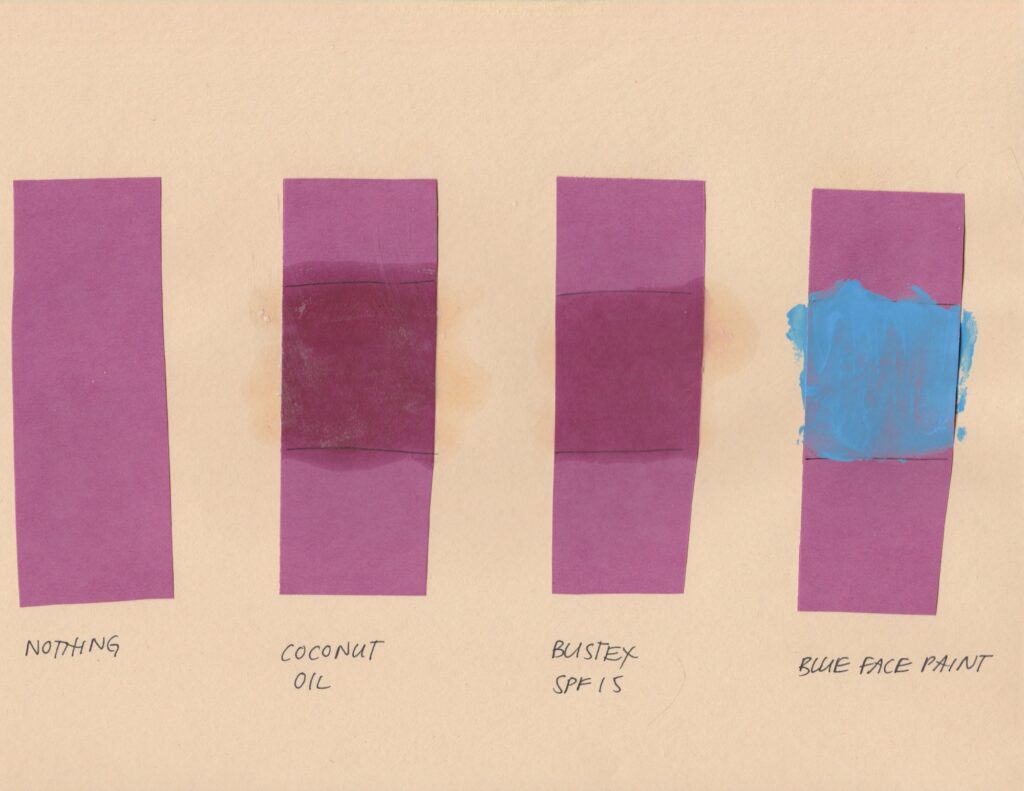 NOTHING
COCONUT
OIL
BLISTEX
SPF 15
BLUE FACE PAINT